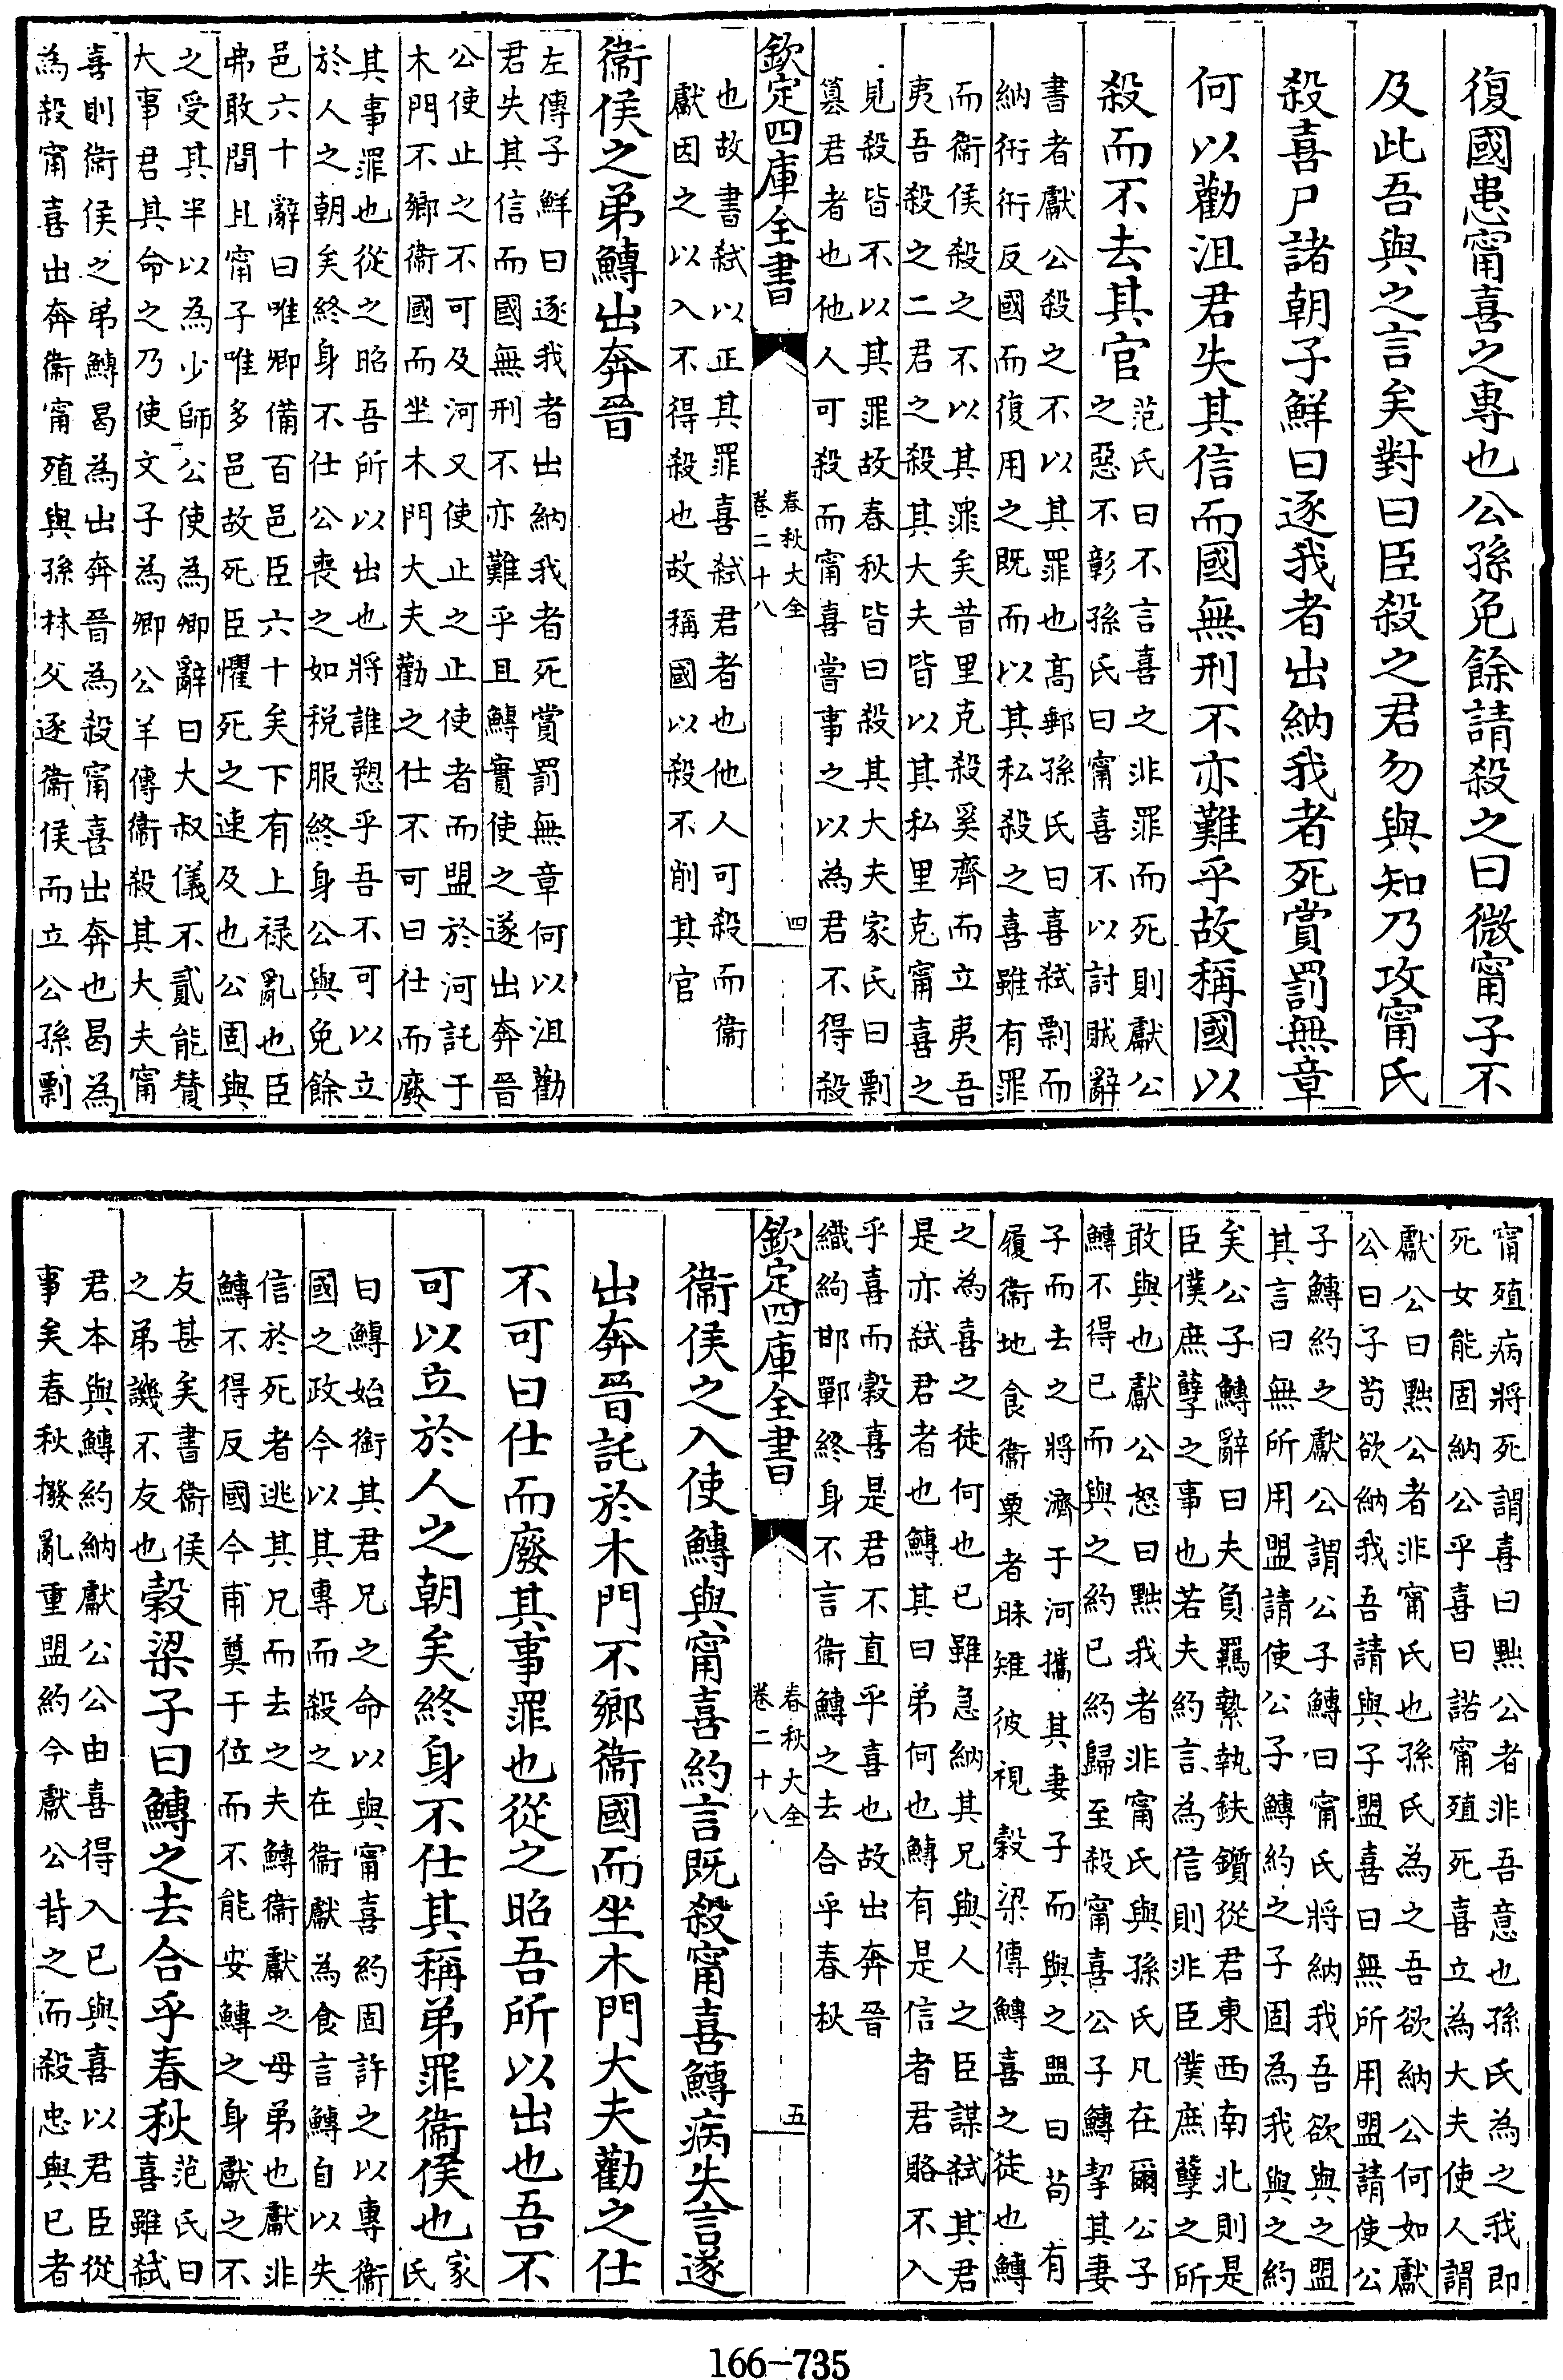 復國患甯喜之專也公孫免餘請殺之曰微甯子不
及此吾與之言矣對曰臣殺之君勿與知乃攻甯氏
殺喜尸諸朝子鮮曰逐我者出納我者死賞罰無章
何以勸沮君失其信而國無刑不亦難乎故稱國以
殺而不去其官范氏曰不言喜之非罪而死則獻公
之惡不彰孫氏曰甯喜不以討賊辭
書者獻公殺之不以其罪也髙郵孫氏曰喜弑剽而
納衎衎反國而復用之既而以其私殺之喜雖有罪
而衞侯殺之不以其罪矣昔里克殺奚齊而立夷吾
夷吾殺之二君之殺其大夫皆以其私里克甯喜之
見殺皆不以其罪故春秋皆曰殺其大夫家氏曰剽
簒君者也他人可殺而甯喜嘗事之以為君不得殺
欽定四庫全書
春秋大全
卷二十八
四
也故書弑以正其罪喜弑君者也他人可殺而衞
獻因之以入不得殺也故稱國以殺不削其官
衞侯之弟鱄出奔晉
左傳子鮮曰逐我者出納我者死賞罰無章何以沮勸
君失其信而國無刑不亦難乎且鱄實使之遂出奔晉
公使止之不可及河又使止之止使者而盟於河託于
木門不鄉衞國而坐木門大夫勸之仕不可曰仕而廢
其事罪也從之昭吾所以出也將誰愬乎吾不可以立
於人之朝矣終身不仕公喪之如税服終身公與免餘
邑六十辭曰唯卿備百邑臣六十矣下有上禄亂也臣
弗敢聞且甯子唯多邑故死臣懼死之速及也公固與
之受其半以為少師公使為卿辭曰大叔儀不貳能賛
大事君其命之乃使文子為卿公羊傳衞殺其大夫甯
喜則衞侯之弟鱄曷為出奔晉為殺甯喜出奔也曷為
為殺甯喜出奔衞甯殖與孫林父逐衞侯而立公孫剽
甯殖病將死謂喜曰黜公者非吾意也孫氏為之我即
死女能固納公乎喜曰諾甯殖死喜立為大夫使人謂
獻公曰黜公者非甯氏也孫氏為之吾欲納公何如獻
公曰子苟欲納我吾請與子盟喜曰無所用盟請使公
子鱄約之獻公謂公子鱄曰甯氏將納我吾欲與之盟
其言曰無所用盟請使公子鱄約之子固為我與之約
矣公子鱄辭曰夫負羈縶執鈇鑕從君東西南北則是
臣僕庶孽之事也若夫約言為信則非臣僕庶孽之所
敢與也獻公怒曰黜我者非甯氏與孫氏凡在爾公子
鱄不得已而與之約已約歸至殺甯喜公子鱄挈其妻
子而去之將濟于河攜其妻子而與之盟曰茍有
履衞地食衞粟者昧雉彼視穀梁傳鱄喜之徒也鱄
之為喜之徒何也已雖急納其兄與人之臣謀弑其君
是亦弑君者也鱄其曰弟何也鱄有是信者君賂不入
乎喜而殺喜是君不直乎喜也故出奔晉
織絇邯鄲終身不言衞鱄之去合乎春秋
欽定四庫全書
春秋大全
卷二十八
五
衞侯之入使鱄與甯喜約言既殺甯喜鱄病失言遂
出奔晉託於木門不鄉衞國而坐木門大夫勸之仕
不可曰仕而廢其事罪也從之昭吾所以出也吾不
可以立於人之朝矣終身不仕其稱弟罪衞侯也家
氏
曰鱄始銜其君兄之命以與甯喜約固許之以專衞
國之政今以其專而殺之在衞獻為食言鱄自以失
信於死者逃其兄而去之夫鱄衞獻之母弟也獻非
鱄不得反國今甫奠于位而不能安鱄之身獻之不
友甚矣書衞侯
之弟譏不友也穀梁子曰鱄之去合乎春秋范氏曰
喜雖弑
君本與鱄約納獻公公由喜得入已與喜以君臣從
事矣春秋撥亂重盟約今獻公背之而殺忠與已者
166-735